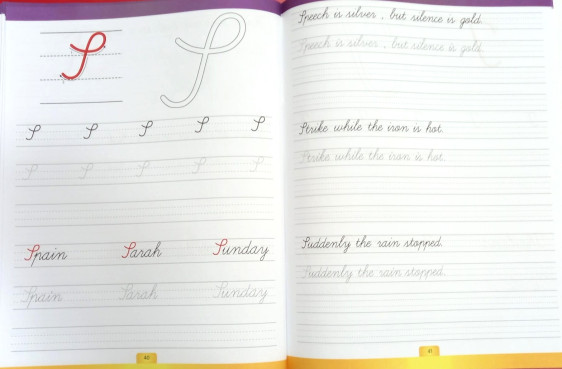 S
S S S S S
S S S S S
Spain Sarah Sunday
Spain Sarah Sunday
40
Speech is silver , but silence is gold.
Speech is silver , but silence is gold.
Strike while the iron is hot.
Strike while the iron is hot.
Suddenly the rain stopped.
Suddenly the rain stopped.
41